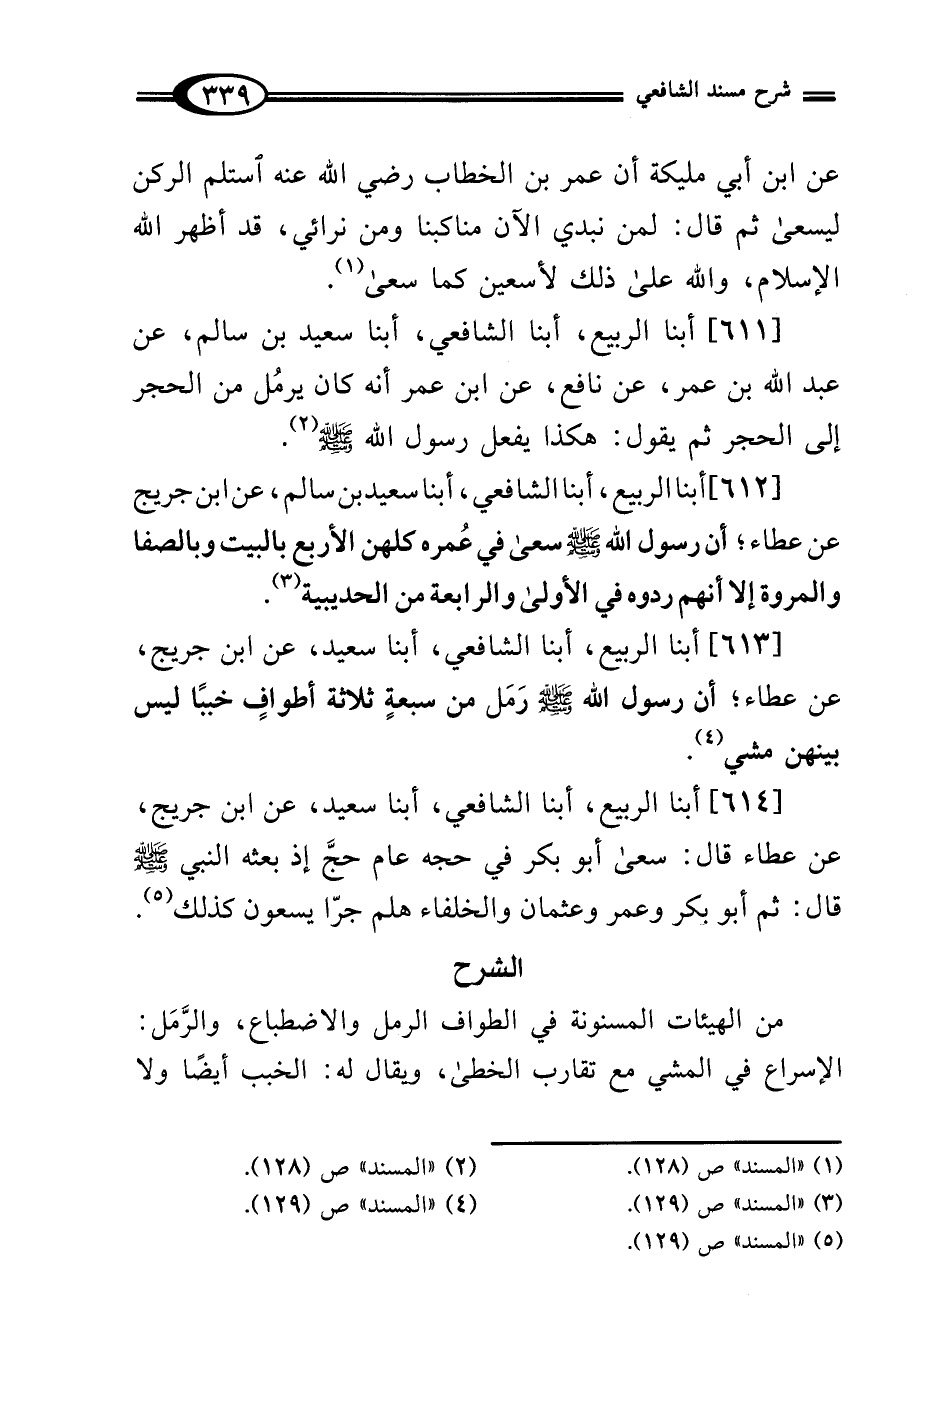 شرح مسند الشافعي ٣٣٩
عن ابن أبي مليكة أن عمر بن الخطاب رضي الله عنه ٱستلم الركن
ليسعىٰ ثم قال: لمن نبدي الآن مناكبنا ومن نرائي، قد أظهر الله
الإسلام، والله علىٰ ذلك لأسعين كما سعىٰ(١).
[٦١١] أبنا الربيع، أبنا الشافعي، أبنا سعيد بن سالم، عن
عبد الله بن عمر، عن نافع، عن ابن عمر أنه كان يرمُل من الحجر
إلى الحجر ثم يقول: هكذا يفعل رسول الله ﷺ(٢).
[٦١٢] أبنا الربيع، أبنا الشافعي، أبنا سعيد بن سالم، عن ابن جريج
عن عطاء؛ أن رسول الله ﷺ سعىٰ في عُمره كلهن الأربع بالبيت وبالصفا
والمروة إلا أنهم ردوه في الأولىٰ والرابعة من الحديبية(٣).
[٦١٣] أبنا الربيع، أبنا الشافعي، أبنا سعيد، عن ابن جريج،
عن عطاء؛ أن رسول الله ﷺ رَمَل من سبعةٍ ثلاثة أطوافٍ خببًا ليس
بينهن مشي(٤).
[٦١٤] أبنا الربيع، أبنا الشافعي، أبنا سعيد، عن ابن جريج،
عن عطاء قال: سعىٰ أبو بكر في حجه عام حجَّ إذ بعثه النبي ﷺ
قال: ثم أبو بكر وعمر وعثمان والخلفاء هلم جرّا يسعون كذلك(٥).
الشرح
من الهيئات المسنونة في الطواف الرمل والاضطباع، والرَّمَل:
الإسراع في المشي مع تقارب الخطىٰ، ويقال له: الخبب أيضًا ولا
(١) «المسند» ص (١٢٨). (٢) «المسند» ص (١٢٨).
(٣) «المسند» ص (١٢٩). (٤) «المسند» ص (١٢٩).
(٥) «المسند» ص (١٢٩).